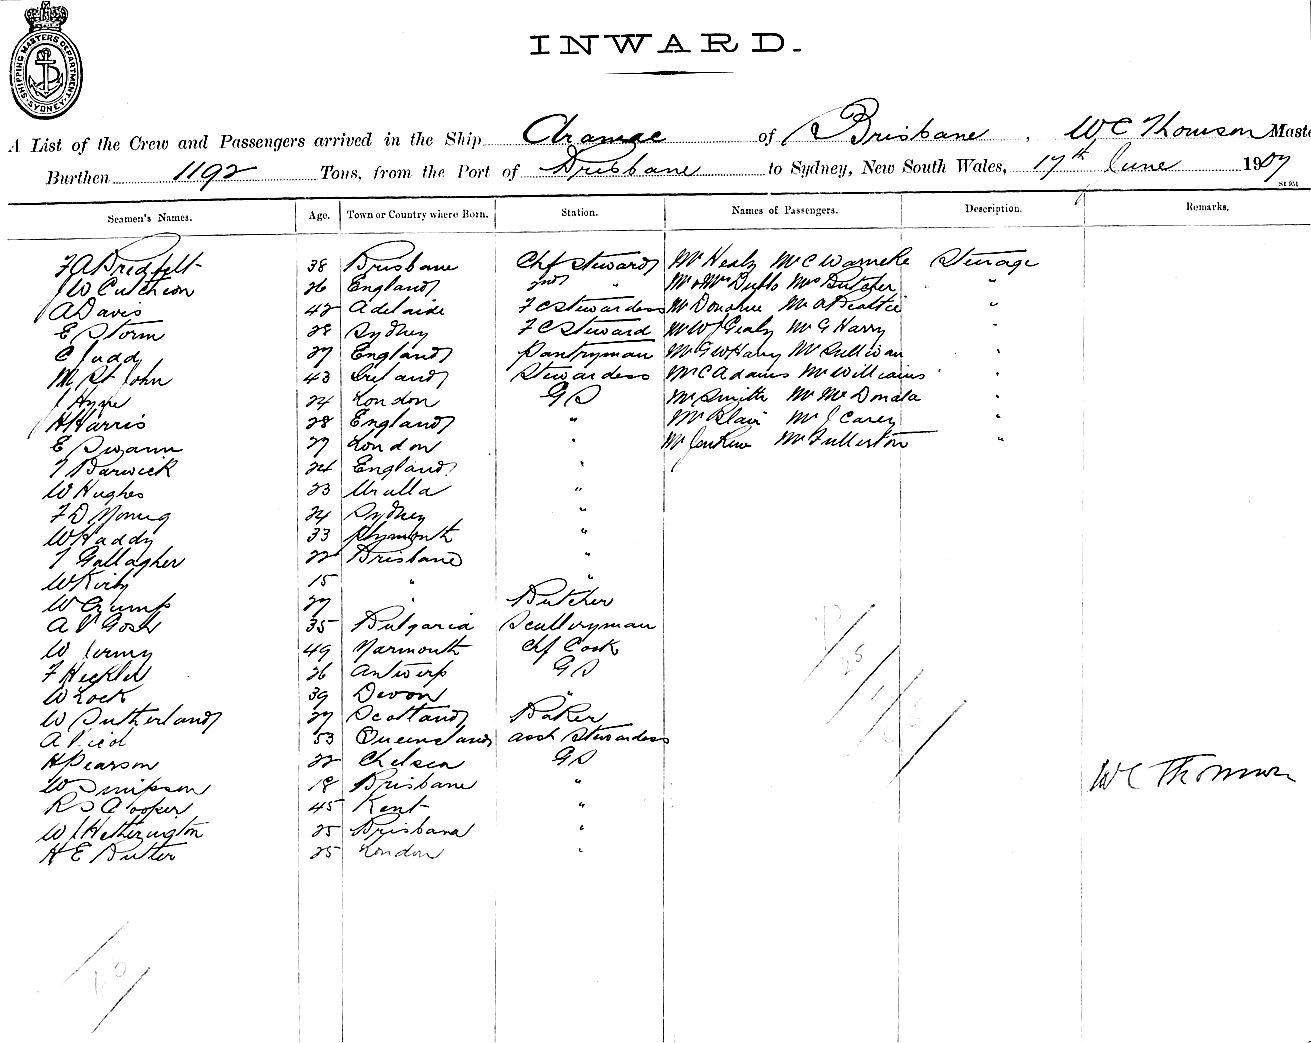 SHIPPING MASTERS DEPARTMENT SYDNEY
INWARD.
A List of the Crew and Passengers arrived in the Ship Aramac of Brisbane, W C Thomson Maste
Burthen 1192 Tons, from the Port of Brisbane to Sydney, New South Wales, 17th June 1907
Seamen's Names. Age. Town or Country where Born. Station. Names of Passengers. Description. Remarks.
38 Brisbane Chf Steward Mr Healy Mr C Warneke Steerage
J W Cutcheon 26 England 2nd " Mr & Mrs Duffs Mrs Butcher "
A Davis 42 Adelaide F C Stewardess Mr Donohue Mr A Beattie "
E Storm 28 Sydney F C Steward Mr W J Grady Mr G Harry "
C Judd 27 England Pantryman Mr G W Harry Mr Sullivan "
M St John 43 Ireland Stewardess Mr C Adams Mr Williams "
J Hyne 24 London G S Mr Smith Mr McDonald "
H Harris 28 England " Mr Blair Mr J Carey "
E Swann 27 London " Mr Jenkin Mr Fullerton "
T Barwick 24 England "
W Hughes 23 Uralla "
F D 24 Sydney "
W Haddy 33 Plymouth "
T Gallagher 22 Brisbane "
W Kirby 15 " "
W Crump 27 " Butcher
A V 35 Bulgaria Sculleryman
W Jermy 49 Yarmouth Chf Cook
F Heckler 26 Antwerp G S
W Lock 39 Devon "
W Sutherland 27 Scotland Baker
A 53 Queensland asst Stewardess
H Pearson 22 Chelsea G S
W Simpson 18 Brisbane "
R S Cooper 45 Kent "
W J Hetherington 25 Brisbane "
H E Butler 25 London "
W C Thomson